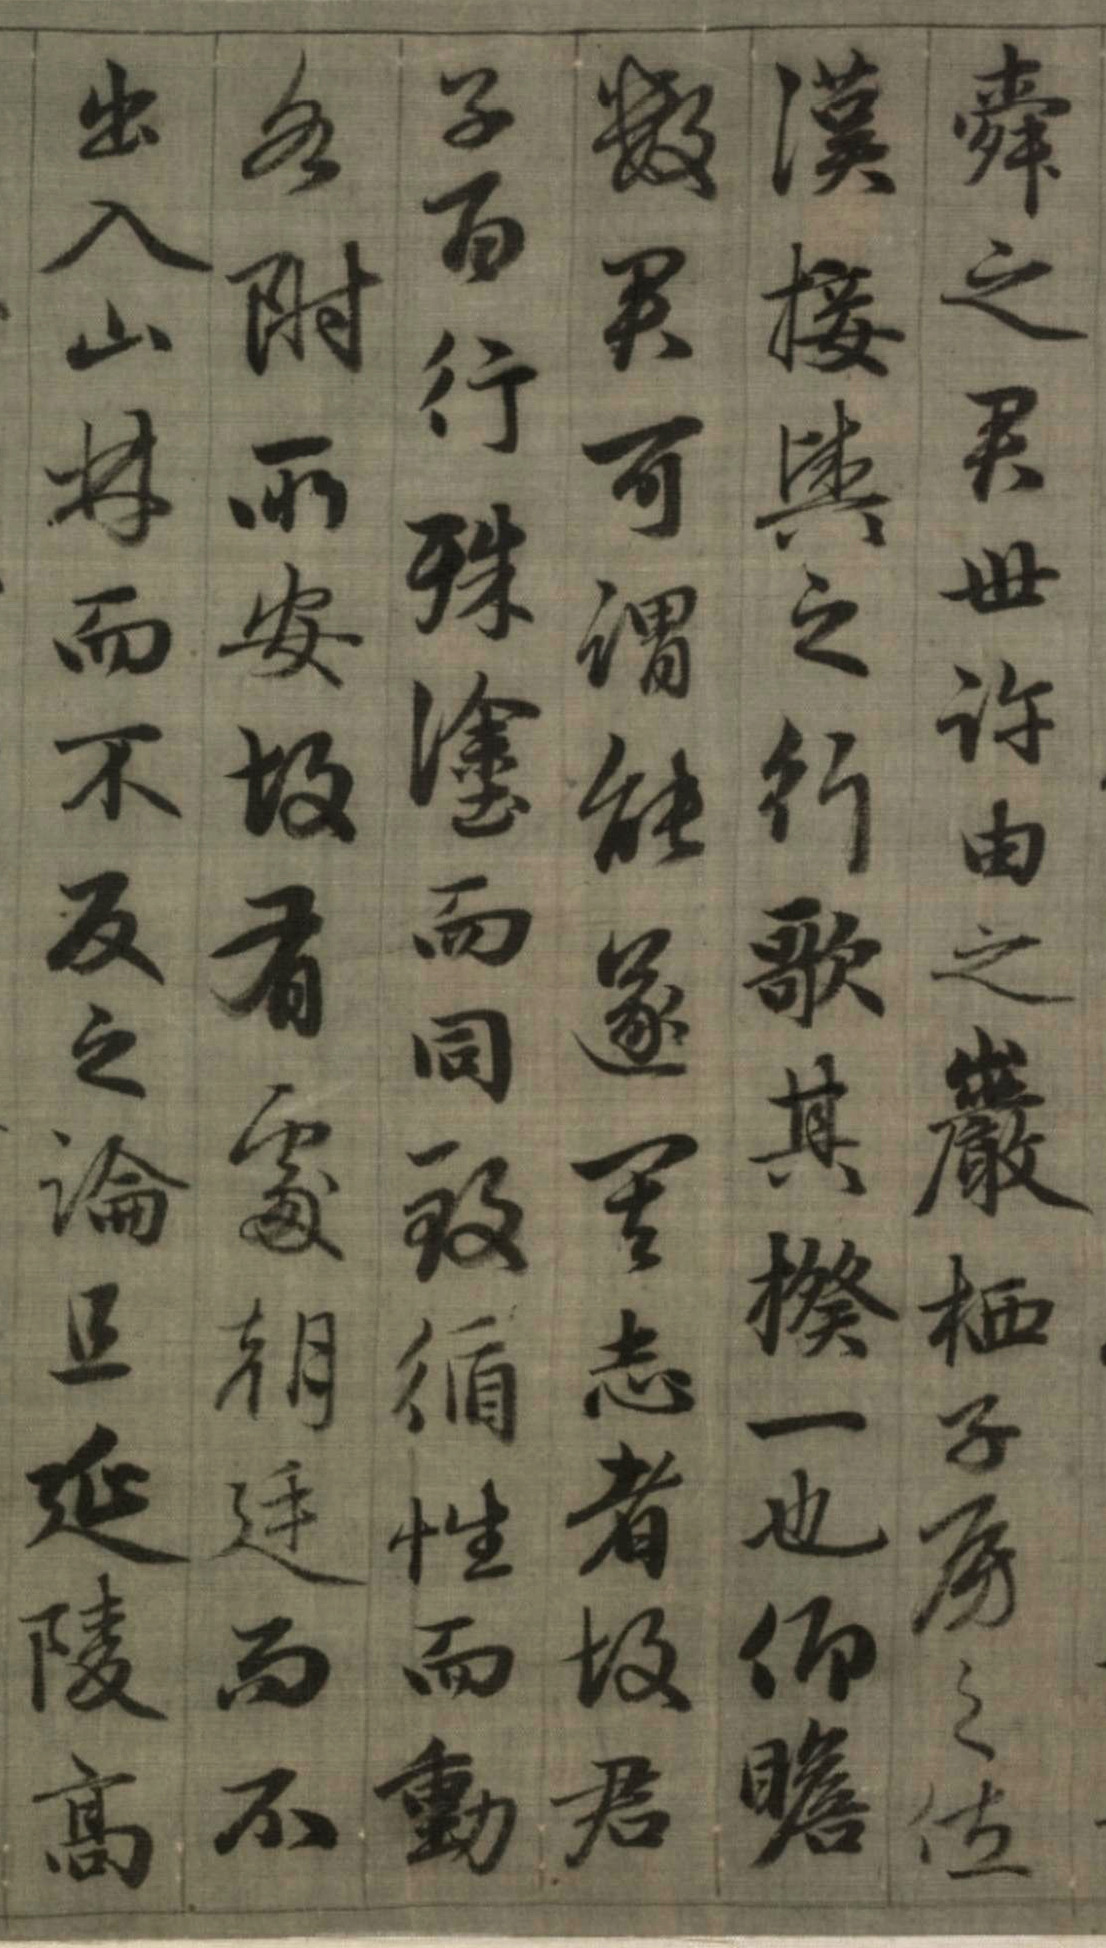 舜之君世許由之巖栖子房之佐
漢接輿之行歌其揆一也仰瞻
數君可謂能遂其志者故君
子百行殊塗而同致循性而動
各附所安故有處朝廷而不
出入山林而不反之論且延陵高